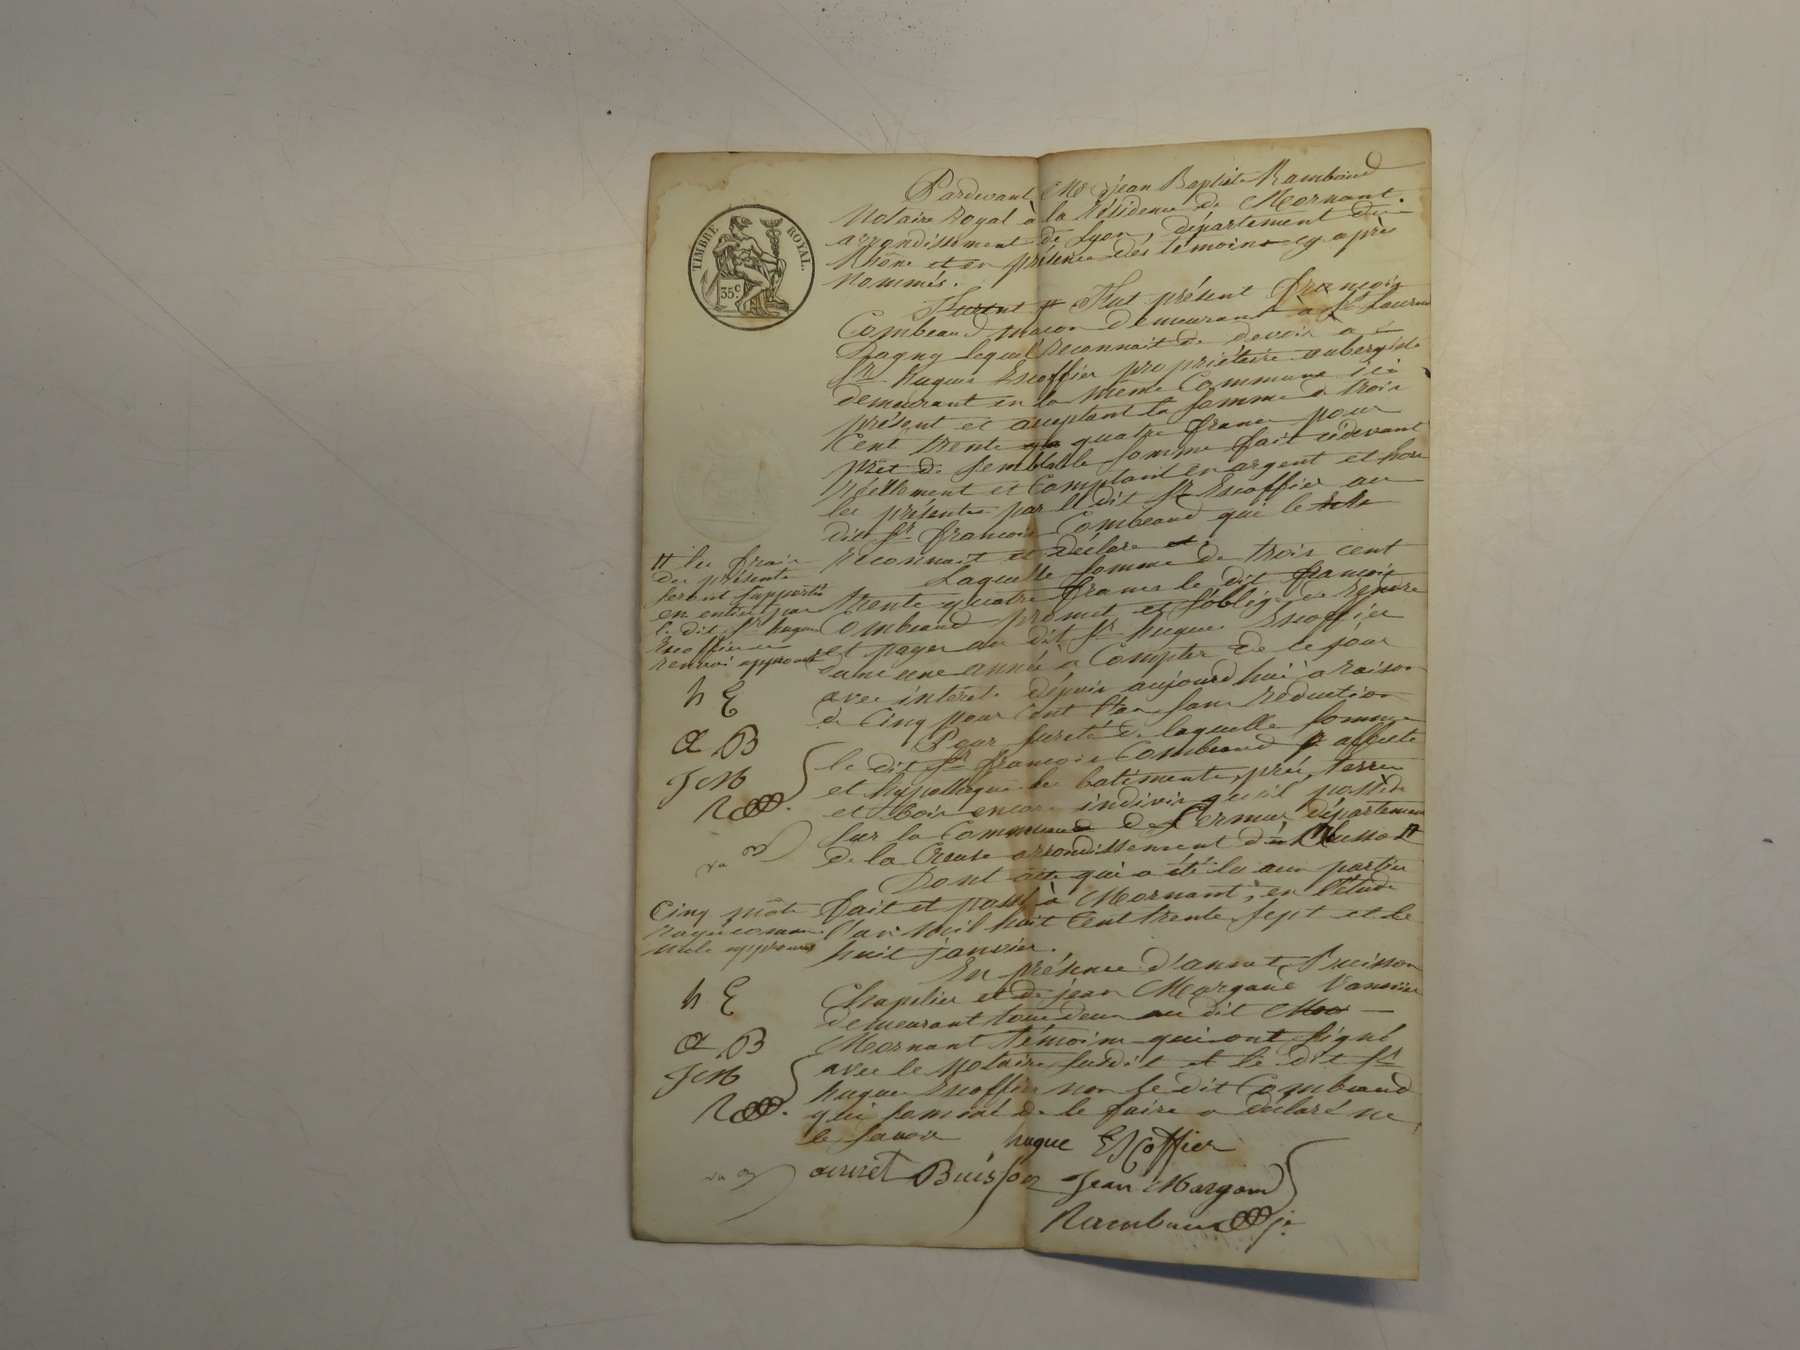 TIMBRE ROYAL.
35 c.
Pardevant Me jean Baptiste Rambaud
Notaire Royal à la Résidence de Mornant.
arrondissement de Lyon, département du
Rhône et en présence des témoins cy après
Nommés.
Furent Fut présent françois
Combeaud maçon demeurant à St Laurent
Dagny lequel reconnait de devoir a
Sr hugues Escoffier propriétaire aubergiste
demeurant en la même Commune ici
présent et acceptant la somme de trois
Cent trente quatre francs pour
prêt de semblable somme fait cidevant
Réellement et Comptant en argent et hors
les présentes par le dit Sr Escoffier au
dit Sr francois Combeaud qui le
reconnait et déclare
Laquelle somme de trois cent
trente quatre francs le dit francois
Combeaud promet et s'oblige de rendre
et payer au dit Sr hugues Escoffier
dans une année à Compter de ce jour
avec intérêts dépuis aujourd'hui à raison
de Cinq pour Cent l'an sans réduction
Pour sureté de laquelle somme
le dit Sr francois Combeaud affecte
et hypothèque les batiments, prés, terres
et bois encore indivis qu'il possède
sur la Commune de département
de la Creuse arrondissement
Dont acte qui a été lu aux parties
fait et passé à Mornant, en l'étude
l'an mil huit Cent trente sept et le
huit janvier.
En présence d'annet Buisson
Chapelier et de jean Morgand
demeurant tous deux au dit Mor
Mornant témoins qui ont signé
avec le Notaire susdit et le dit Sr
hugues Escoffier non le dit Combeaud
qui sommé de le faire a déclaré ne
le savoir
hugue Escoffier
annet Buisson Jean Morgand
Rambaud
# les frais
des présentes
seront supportés
en entier par
le dit Sr hugues
Escoffier
renvoi approuvé
h E
a B
J M
R
Cinq mots
rayés comme
nuls approuvés
h. E
a B
J M
R